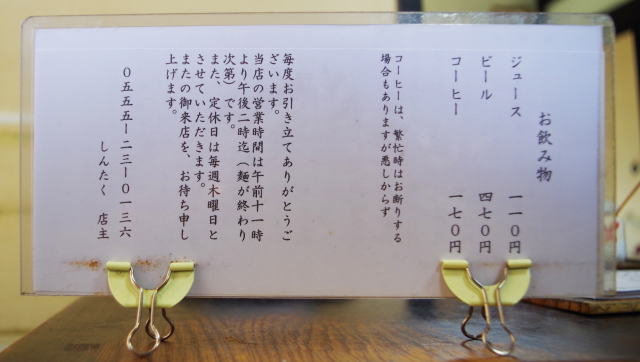 お飲み物
ジュース 一一〇円
ビール 四七〇円
コーヒー 一七〇円
コーヒーは、繁忙時はお断りする
場合もありますが悪しからず
毎度お引き立てありがとうご
ざいます。
当店の営業時間は午前十一時
より午後二時迄（麺が終わり
次第）です。
また、定休日は毎週木曜日と
させていただきます。
またの御来店を、お待ち申し
上げます。
０５５５ー２３ー０一三六
しんたく 店主